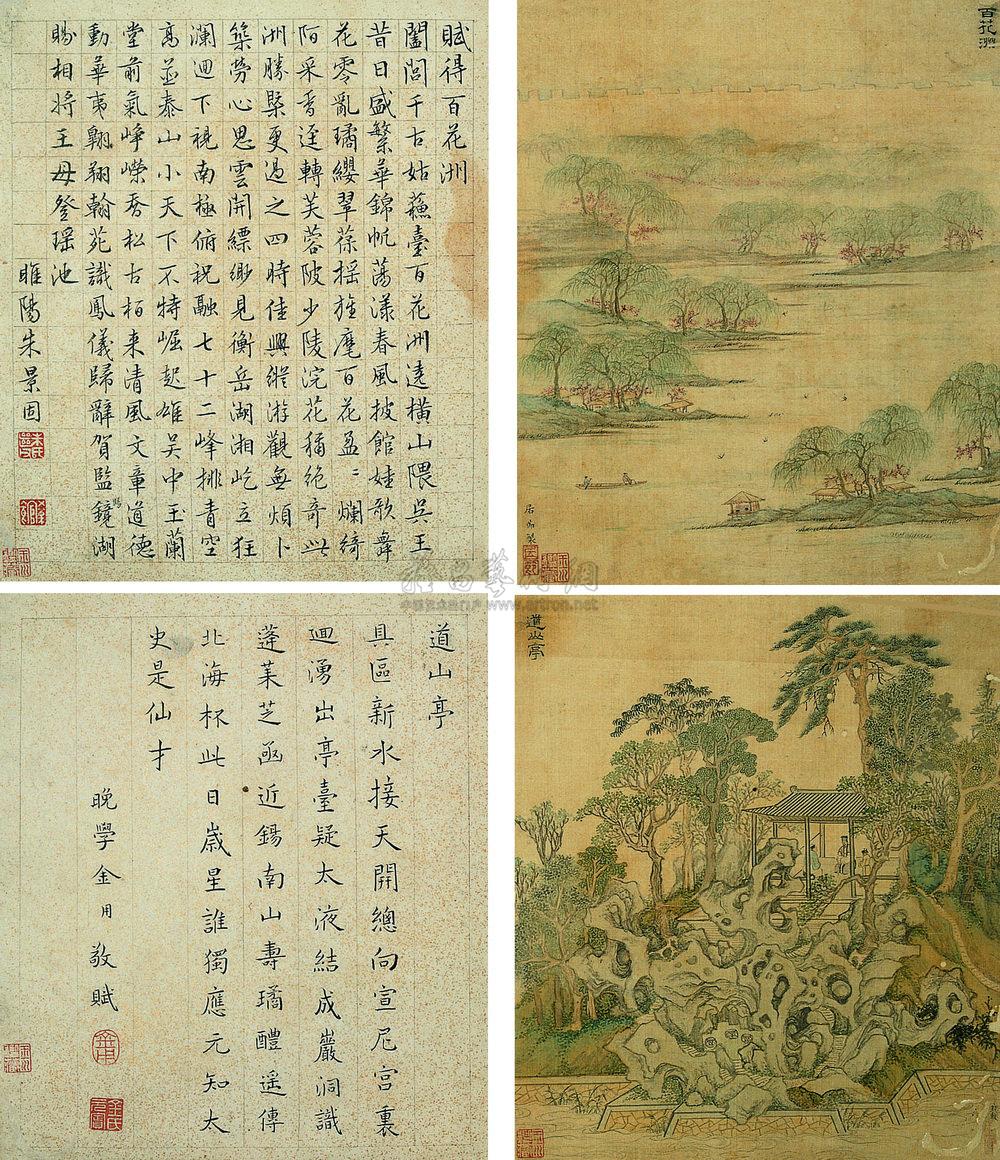 賦得百花洲
闔閭千古姑蘓臺百花洲遶橫山隈吳王
昔日盛繁華錦帆蕩漾春風披館娃歌舞
花零亂璚纓翠葆搖旌麾百花盈〻爛綺
陌采香逕轉芙蓉陂少陵浣花稱絶奇此
洲勝槩更過之四時佳興縱游觀無煩卜
築勞心思雲開縹緲見衡岳湖湘屹立狂
瀾迴下視南極俯祝融七十二峰排青空
高並泰山小天下不特崛起雄吳中玉蘭
堂前氣崢嶸喬松古栢来清風文章道德
動華夷翺翔翰苑識鳳儀歸辭賀監鏡湖
賜相將王母登瑶池
睢陽朱景固
百花洲
居節製
道山亭
具區新水接天開總向宣尼宮裏
迴湧出亭臺疑太液結成巖洞識
蓬萊芝函近錫南山壽璚醴遥傳
北海杯此日歲星誰獨應元知太
史是仙才
晚學金用敬賦
道山亭
www.artron.net